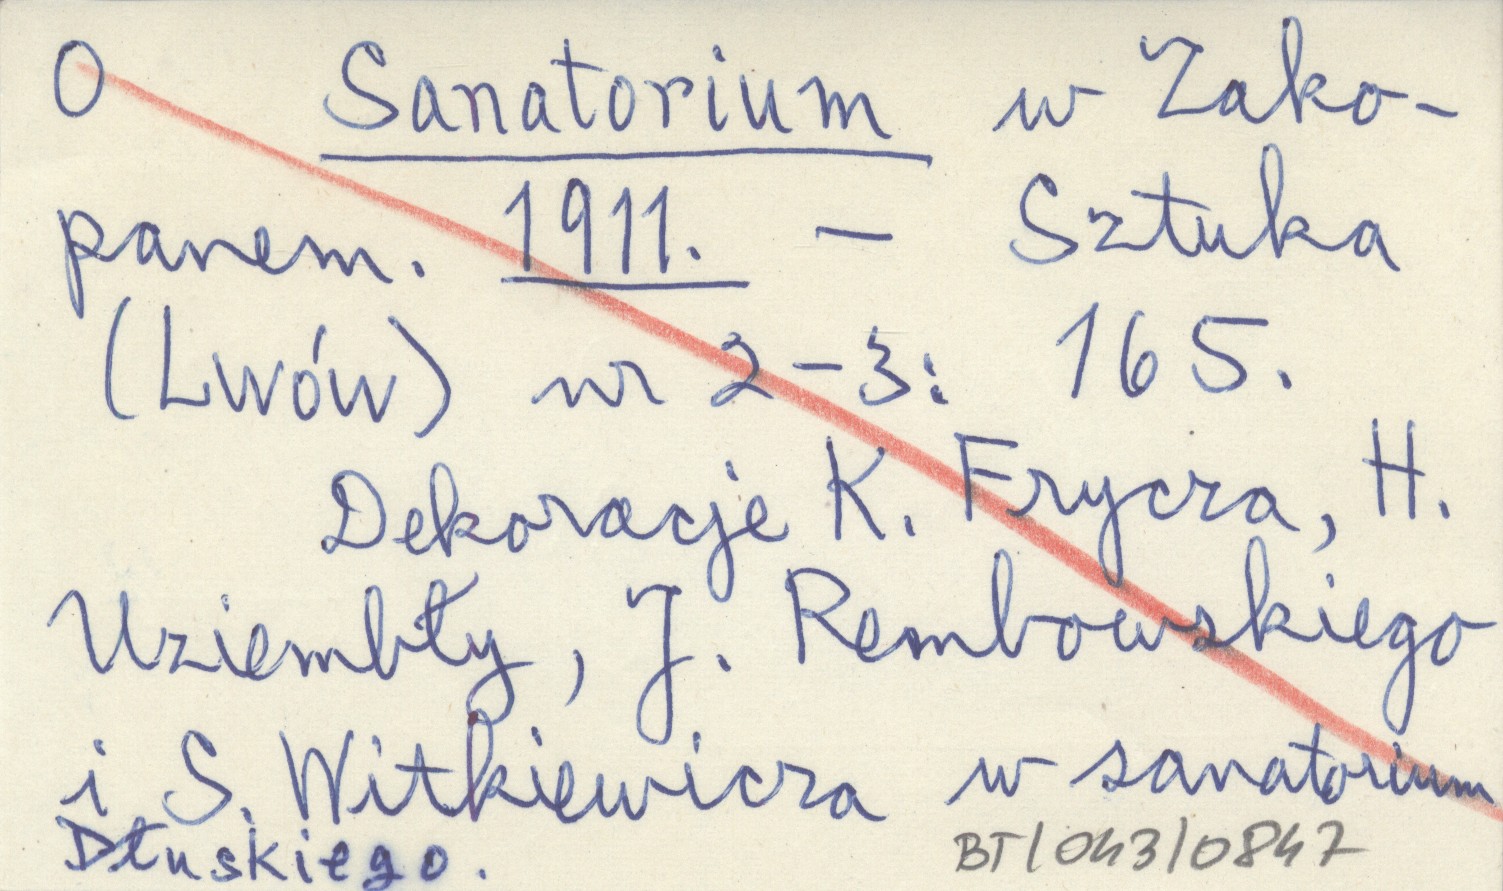 O Sanatorium w Zako-
panem. 1911. – Sztuka
(Lwów) nr 2–3: 165.
Dekoracje K. Frycza, H.
Uziembły, J. Rembowskiego
i S. Witkiewicza w sanatorium
Dłuskiego.
BT/043/0847